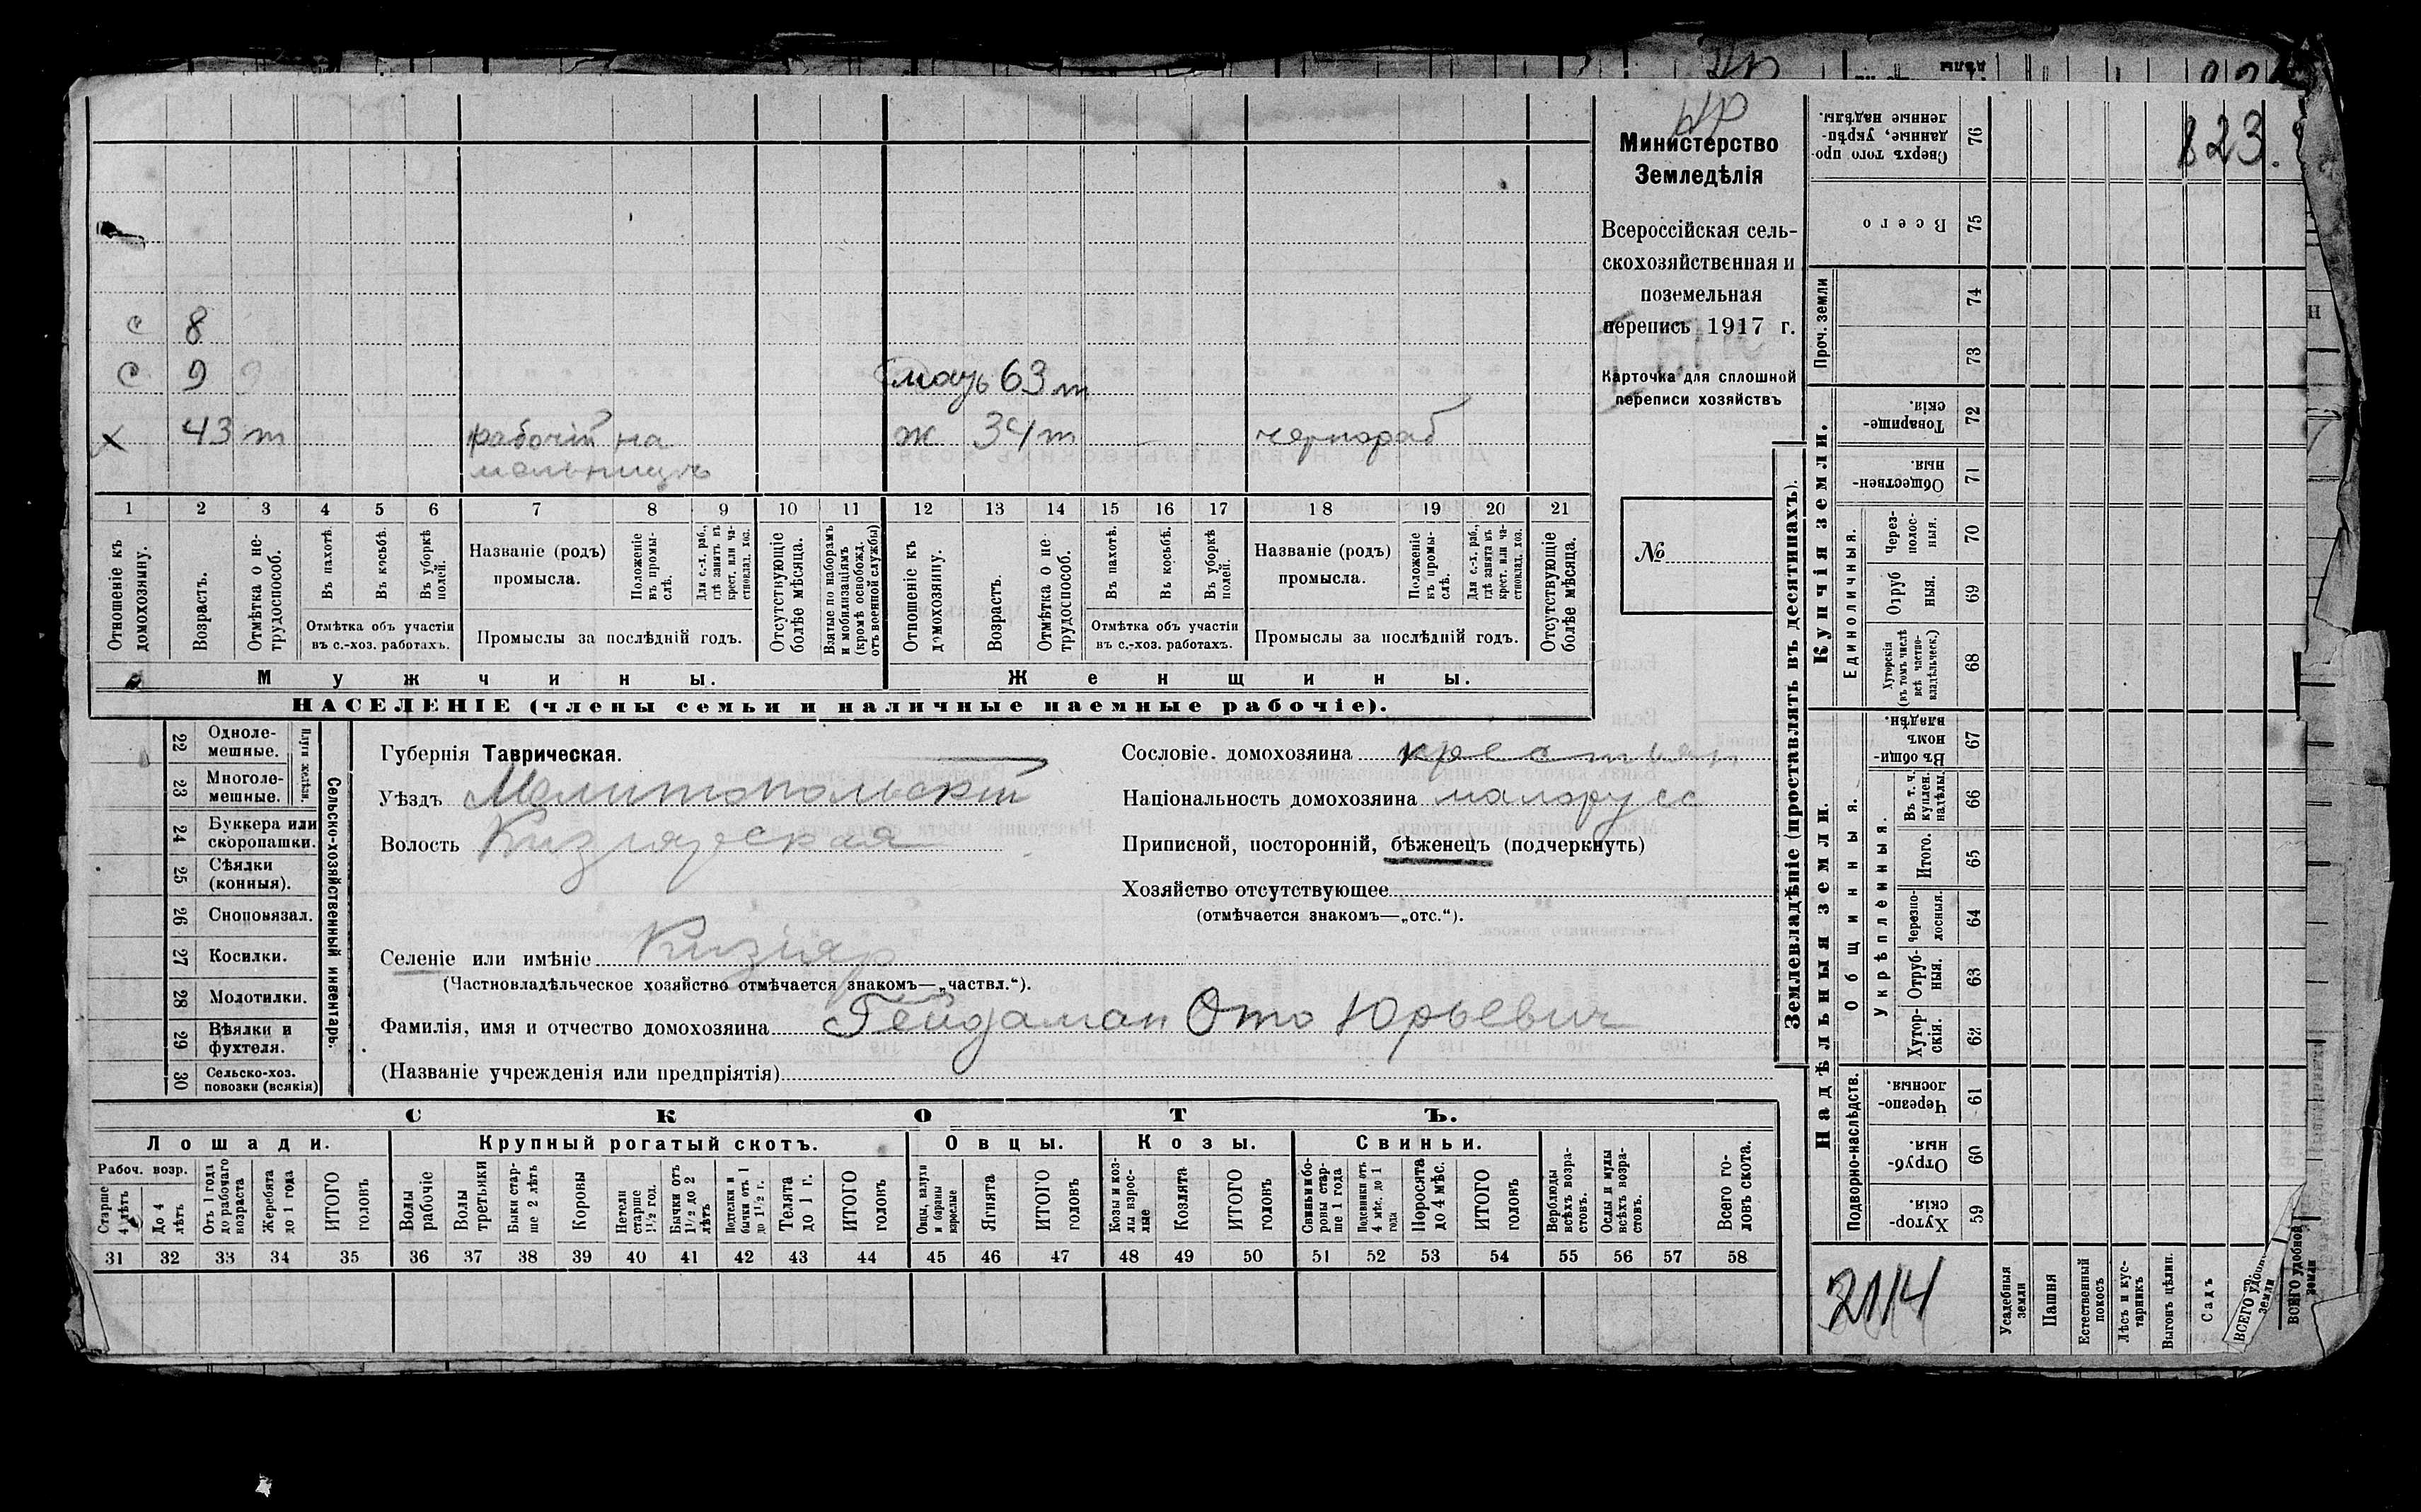 823.
с 8
с 9
мать 63 т
х 43 т рабочій на мельницѣ
ж 34 т — чернораб
1 2 3 4 5 6 7 8 9 10 11 12 13 14 15 16 17 18 19 20 21
Отношеніе къ домохозяину.
Возрастъ.
Отмѣтка о нетрудоспособ.
Въ пахотѣ.
Въ косьбѣ.
Въ уборкѣ полей.
Отмѣтка объ участіи въ с.-хоз. работахъ.
Названіе (родъ) промысла.
Положеніе въ промыслѣ.
Для с.-х. раб., гдѣ занятъ въ крест. или частновлад. хоз.
Промыслы за послѣдній годъ.
Отсутствующіе болѣе мѣсяца.
Взятые по наборамъ и мобилизаціямъ (кромѣ освобожд. отъ военной службы)
Отношеніе къ домохозяину.
Возрастъ.
Отмѣтка о нетрудоспособ.
Въ пахотѣ.
Въ косьбѣ.
Въ уборкѣ полей.
Отмѣтка объ участіи въ с.-хоз. работахъ.
Названіе (родъ) промысла.
Положеніе въ промыслѣ.
Для с.-х. раб., гдѣ занята въ крест. или частновлад. хоз.
Промыслы за послѣдній годъ.
Отсутствующіе болѣе мѣсяца.
Мужчины.
Женщины.
НАСЕЛЕНІЕ (члены семьи и наличные наемные рабочіе).
Министерство
Земледѣлія
Всероссійская сель-
скохозяйственная и
поземельная
перепись 1917 г.
Карточка для сплошной
переписи хозяйствъ
№
22 Однолемешные.
23 Многолемешные.
Плуги желѣзн.
24 Буккера или скоропашки.
25 Сѣялки (конныя).
26 Сноповязал.
27 Косилки.
28 Молотилки.
29 Вѣялки и фухтеля.
30 Сельско-хоз. повозки (всякія)
Сельско-хозяйственный инвентарь.
Губернія Таврическая.
Уѣздъ Мелитопольскій
Волость Кизіярская
Селеніе или имѣніе Кизіяр
(Частновладѣльческое хозяйство отмѣчается знакомъ—„частвл.“).
Фамилія, имя и отчество домохозяина Гейдаман Ото Юрьевич
(Названіе учрежденія или предпріятія)
Сословіе домохозяина крестьян
Національность домохозяина малорусс
Приписной, посторонній, бѣженецъ (подчеркнуть)
Хозяйство отсутствующее
(отмѣчается знакомъ—„отс.“).
СКОТЪ.
Лошади.
Крупный рогатый скотъ.
Овцы.
Козы.
Свиньи.
Рабоч. возр.
Старше 4 лѣтъ
До 4 лѣтъ
Отъ 1 года до рабочаго возраста
Жеребята до 1 года
ИТОГО головъ
Волы рабочіе
Волы третьяки
Быки старше 2 лѣтъ
Коровы
Нетели старше 1½ год.
Бычки отъ 1½ до 2 лѣтъ
Подтелки и бычки отъ 1 до 1½ г.
Телята до 1 г.
ИТОГО головъ
Овцы, валухи и бараны взрослые
Ягнята
ИТОГО головъ
Козы и козлы взрослые
Козлята
ИТОГО головъ
Свиньи и боровы старше 1 года
Подсвинки отъ 4 мѣс. до 1 года
Поросята до 4 мѣс.
ИТОГО головъ
Верблюды всѣхъ возрастовъ.
Ослы и мулы всѣхъ возрастовъ.
Всего головъ скота.
31 32 33 34 35 36 37 38 39 40 41 42 43 44 45 46 47 48 49 50 51 52 53 54 55 56 57 58
Землевладѣніе (проставлять въ десятинахъ).
Сверхъ того проданные, укрѣпленные надѣлы. 76
Всего 75
Проч. земли 74
73
Купчія земли.
Товарищескія. 72
Общественныя. 71
Единоличныя.
Черезполосныя. 70
Отрубныя. 69
Хуторскія (въ томъ числѣ всѣ частновладѣльческ.) 68
Надѣльныя земли.
Общинныя.
Въ общинномъ владѣн. 67
Укрѣпленныя.
Въ т. ч. куплен. надѣлы. 66
Итого. 65
Черезполосныя. 64
Отрубныя. 63
Хуторскія. 62
Подворно-наслѣдств.
Черезполосныя. 61
Отрубныя. 60
Хуторскія. 59
2114
Усадебныя земли
Пашня
Естественный покосъ
Лѣсъ и кустарникъ
Выгонъ цѣлин.
Садъ
ВСЕГО удобной земли